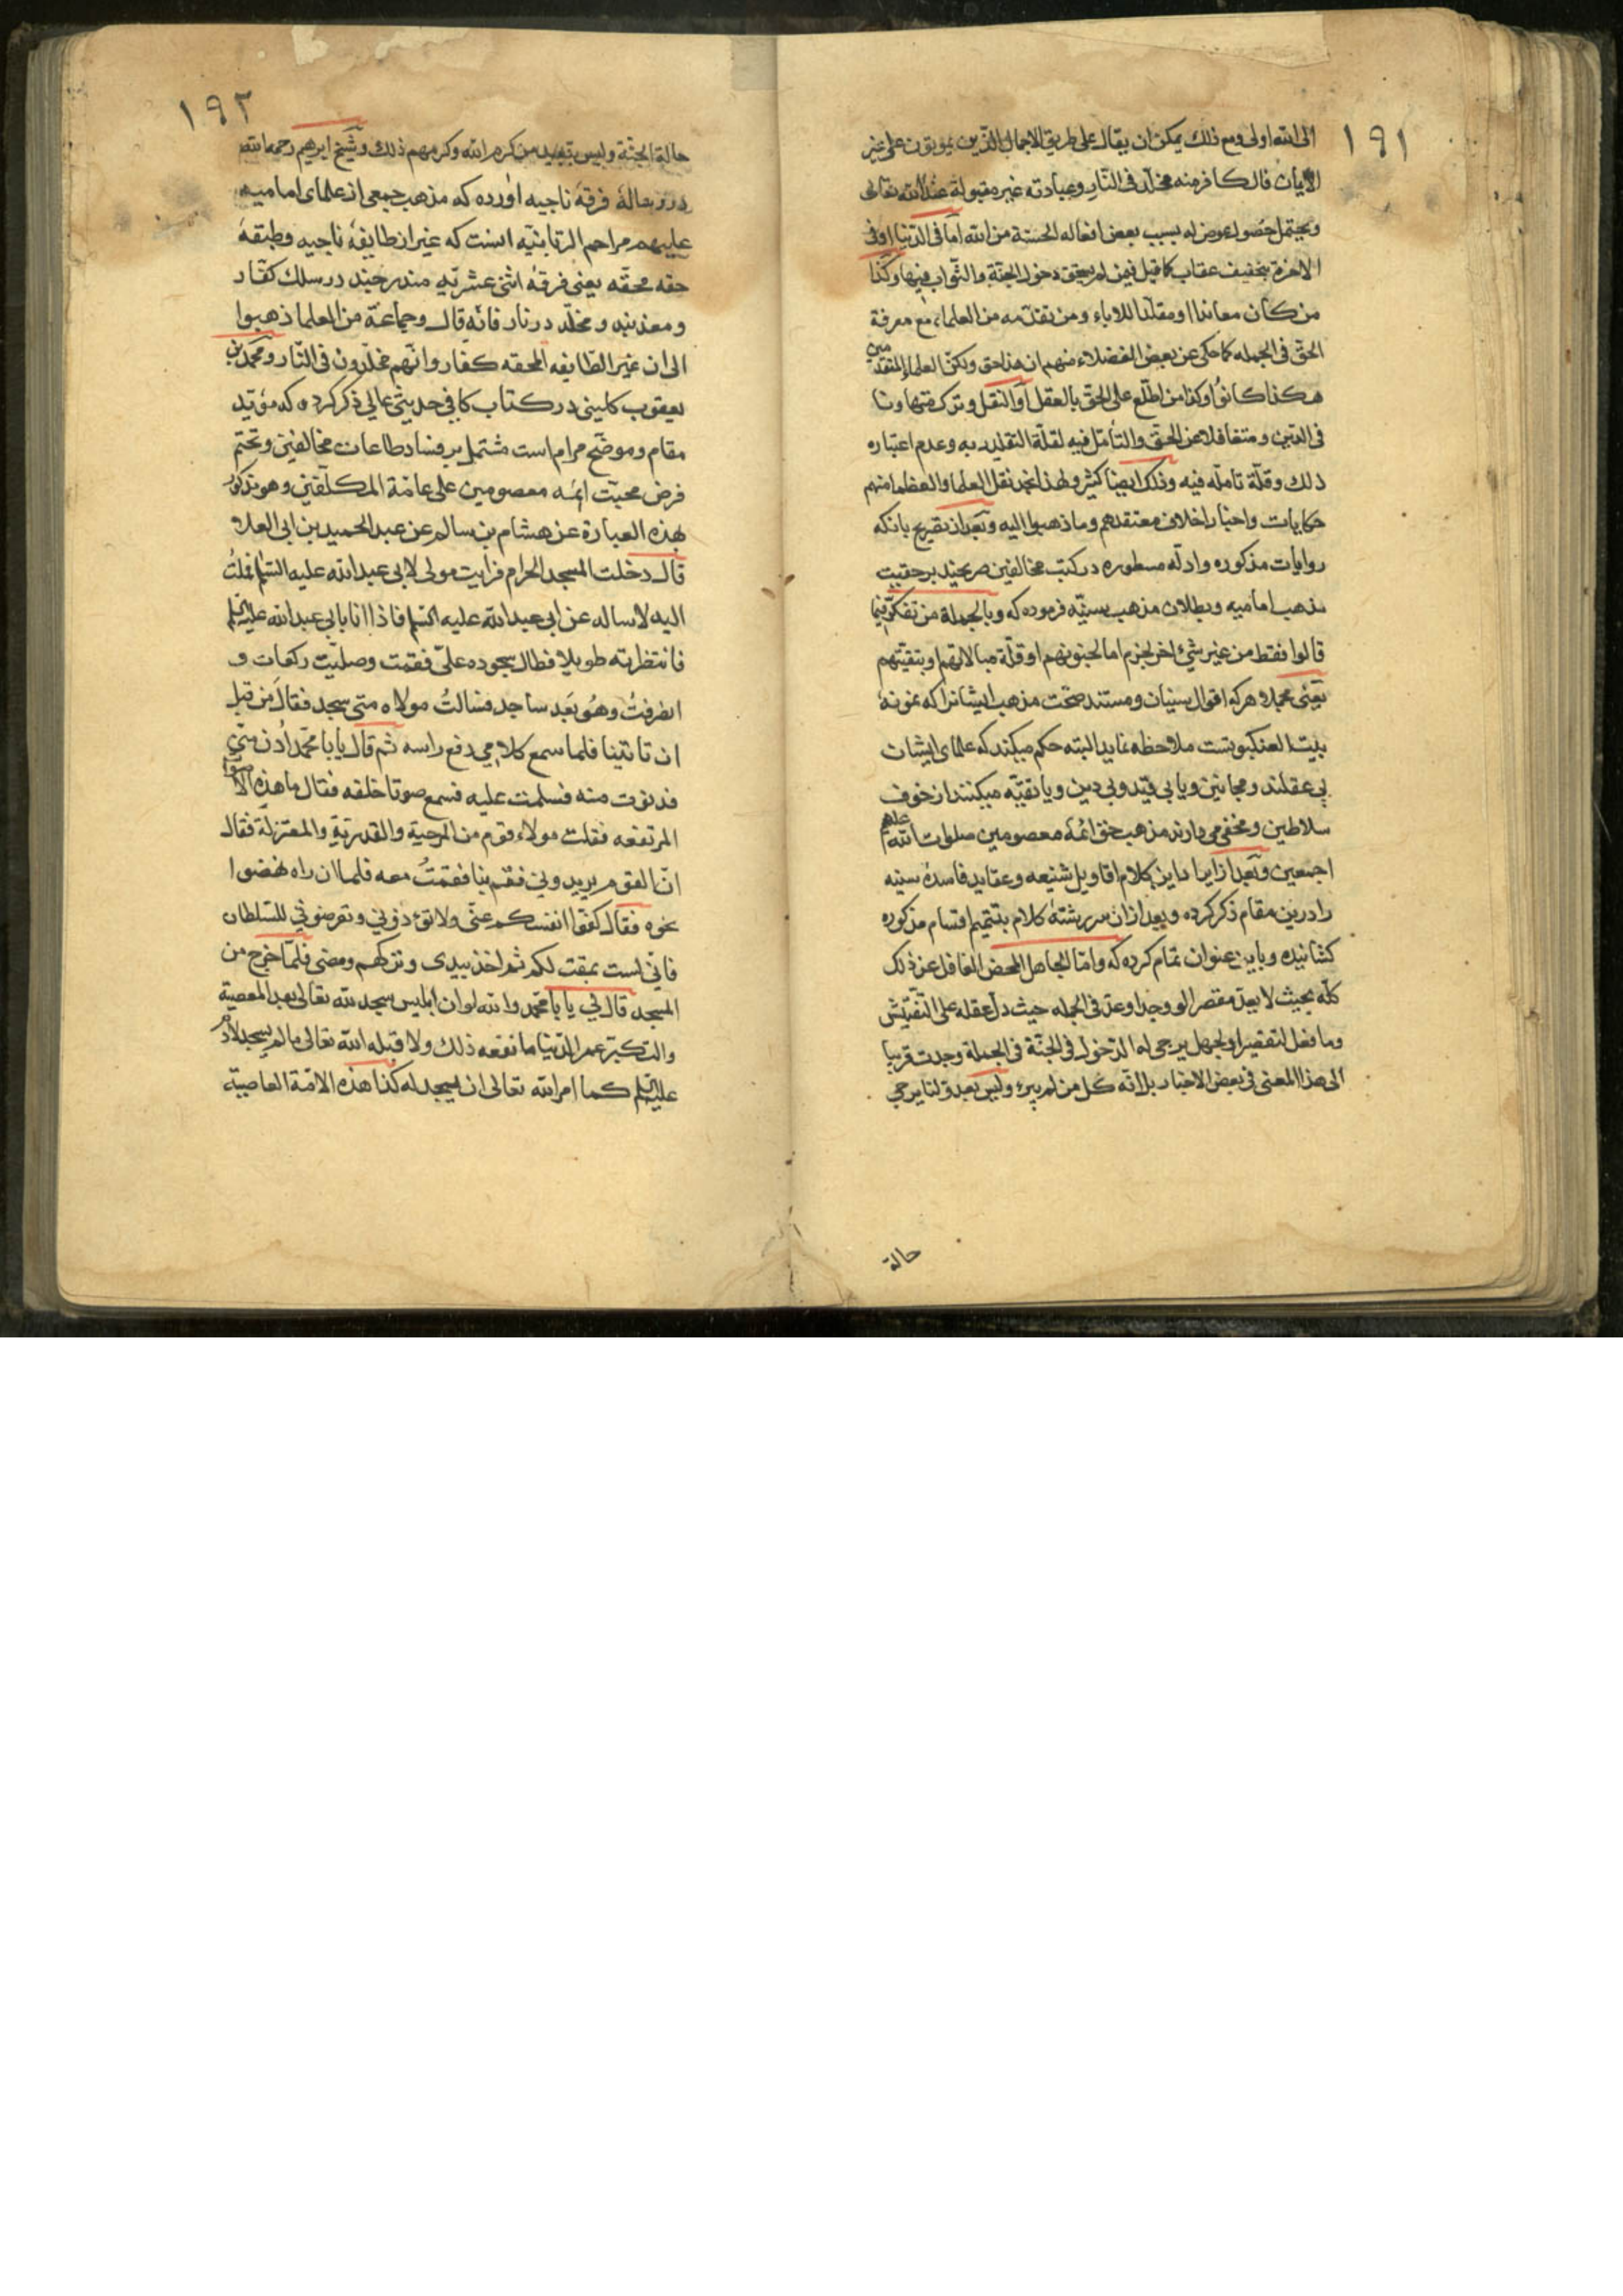 ١٩١
الی الله اولی ومع ذلك يمكن ان يقال علی طريق الاجمال الذين يموتون علی غير
الايمان فالكافر منه مخلد فی النار وعبادته غير مقبولة عند الله تعالی
ويحتمل حصول عوض له بسبب بعض افعاله الحسنة من الله اما فی الدنيا او فی
الاخرة بتخفيف عقاب كما قيل فيمن لم يستحق دخول الجنة والثواب فيها وكذا
من كان معاندا او مقلدا للاباء ومن تقدمه من العلماء مع معرفة
الحق فی الجمله كما حكی عن بعض الفضلاء منهم ان هذا حق ولكن العلماء المتقدمين
هكذا كانوا وكذا من اطلع علی الحق بالعقل او النقل وترك تهاونا
فی الدين ومتغافلا عن الحق والتأمل فيه لقلة التقليد به وعدم اعتباره
ذلك وقلة تامله فيه وذلك ايضا كثير ولهذا نجد نقل العلما والعظما منهم
حكايات واخبار اخلاف معتقدهم وما ذهبوا اليه وبعد از تصريح بانكه
روايات مذكوره وادله مسطوره در كتب مخالفين صريحند بر حقيت
مذهب اماميه وبطلان مذهب سنيه فرموده كه وبالجملة من تفكر فيما
قالوا فقط من غير شئ اخر لجزم اما لجنونهم او قلة مبالاتهم او بتقيتهم
يعنی مجملا هركه اقوال سنيان ومستند صحت مذهب ايشانرا كه نمونهٔ
بيت العنكبوتست ملاحظه نمايد البته حكم ميكند كه علمای ايشان
بی عقلند ومجانين ويا بی قيد وبی دين ويا تقيه ميكنند از خوف
سلاطين ومخفی می دارند مذهب حق ائمهٔ معصومين صلوات الله عليهم
اجمعين وبعد از ايراد اين كلام اقاويل شنيعه وعقايد فاسدهٔ سنيه
را درين مقام ذكر كرده وبعد ازان سررشتهٔ كلام بتتميم اقسام مذكوره
كشانيده وباين عنوان تمام كرده كه واما الجاهل المحض الغافل عن ذلك
كله بحيث لا يعد مقصرا لو وجد او عد فی الجمله حيث دل عقله علی التفتيش
وما فعل لتقصير او لجهل يرجی له الدخول فی الجنة فی الجملة وجدت قريبا
الی هذا المعنی فی بعض الاخبار بل انه كل من لم يبرء وليس بعدو لنا يرجی
حالة
١٩٢
حالة الجنة وليس ببعيد من كرم الله وكرمهم ذلك وشيخ ابرهيم رحمه الله
در رسالهٔ فرقهٔ ناجيه اورده كه مذهب جمعی از علمای اماميه
عليهم مراحم الربانيه انست كه غير از طايفهٔ ناجيه وطبقهٔ
حقه محقه يعنی فرقهٔ اثنی عشريه مندرجند در سلك كفار
ومعذبند ومخلد در نار فانه قال وجماعة من العلما ذهبوا
الی ان غير الطايفه المحقه كفار وانهم مخلدون فی النار ومحمد بن
يعقوب كلينی در كتاب كافی حديثی عالی ذكر كرده كه مؤيد
مقام وموضح مرام است مشتمل بر فساد طاعات مخالفين وتحتم
فرض محبت ائمه معصومين علی عامة المكلفين وهو مذكور
بهذه العبارة عن هشام بن سالم عن عبد الحميد بن ابی العلاء
قال دخلت المسجد الحرام فرايت مولی لابی عبد الله عليه السلام فملت
اليه لاساله عن ابی عبد الله عليه السلم فاذا انا بابی عبد الله عليه السلم
فانتظرته طويلا فطال سجوده علی فقمت وصليت ركعات و
انصرفت وهو بعد ساجد فسالت مولاه متی سجد فقال من قبل
ان تاتينا فلما سمع كلامی رفع راسه ثم قال يا با محمد ادن منی
فدنوت منه فسلمت عليه فسمع صوتا خلفه فقال ما هذه الاصوات
المرتفعه فقلت مولاء قوم من المرجية والقدرية والمعتزلة فقال
ان القوم يريدونی فقم بنا فقمت معه فلما ان راه نهضوا
نحوه فقال كفوا انفسكم عنی ولا تؤذونی وتعرضونی للسلطان
فانی لست بمفت لكم ثم اخذ بيدی وتركهم ومضی فلما خرج من
المسجد قال لی يا با محمد والله لو ان ابليس سجد لله تعالی بعد المعصية
والتكبر عمر الدنيا ما نفعه ذلك ولا قبله الله تعالی ما لم يسجد لادم
عليه السلم كما امر الله تعالی ان يسجد له كذا هذه الامة العاصية